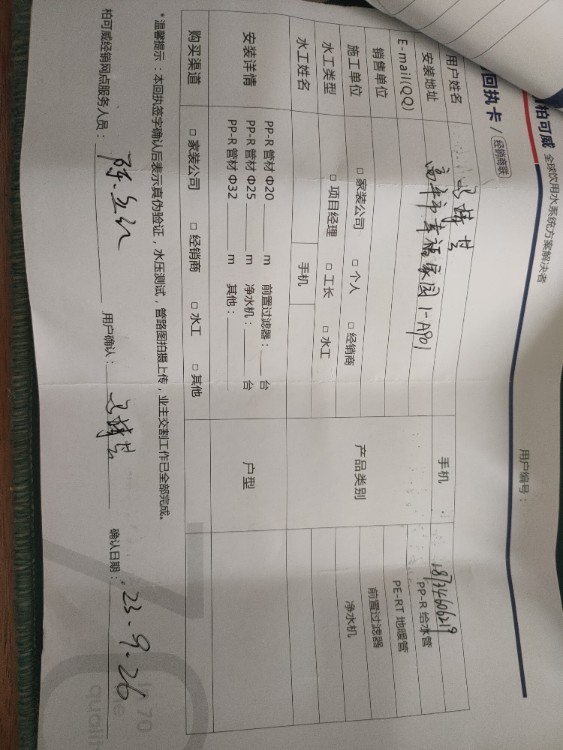 柏可威 全球饮用水系统方案解决者
回执卡 / 经销商联
用户编号：
用户姓名
手机 18734606219
安装地址 高平市幸福家园1-A901
E-mail(QQ)
销售单位
施工单位 □ 家装公司 □ 个人 □ 经销商
水工类型 □ 项目经理 □ 工长 □ 水工
水工姓名 手机
产品类别
PP-R 给水管
PE-RT 地暖管
前置过滤器
净水机
安装详情
PP-R 管材 Φ20 m 前置过滤器： 台
PP-R 管材 Φ25 m 净水机： 台
PP-R 管材 Φ32 m 其他：
户型
购买渠道 □ 家装公司 □ 经销商 □ 水工 □ 其他
*温馨提示：本回执签字确认后表示真伪验证，水压测试，管路图拍摄上传，业主交割工作已全部完成。
柏可威经销网点服务人员： 用户确认： 确认日期： 23.9.26
70
qualit